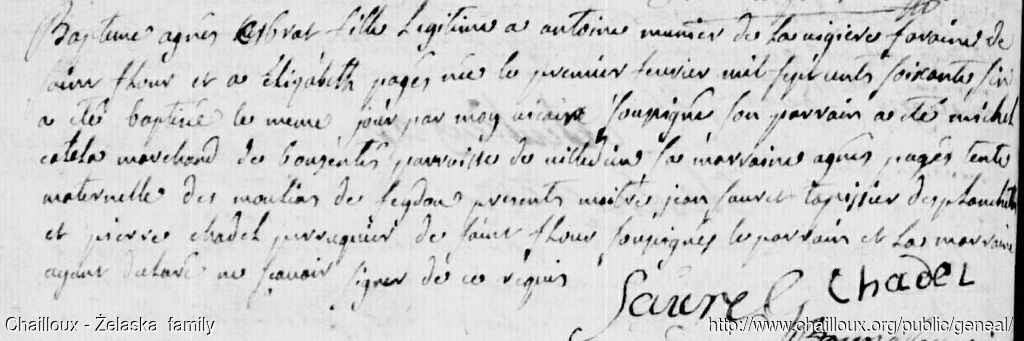 Bapteme agnés Cesbrat fille Legitime a antoine munier de La vigiere foraine de
saint flour et a Elizabeth pagés née le premier feuvrier mil sept cents soixante six
a été baptisé le meme jour par moy vicaire soussigné son parrain a été michel
catela marchand de bouzentés parroisse de villedieu sa marraine agnes pagés tente
maternelle des moulins de leydou presents maitre jean sauret tapissier des planchettes
et pierre chadel perruquier de saint flour soussignés le parrain et La marraine
ayant declaré ne scavoir signer de ce requis
Sauret Chadel
Chailloux - Żelaska family
http://www.chailloux.org/public/geneal/